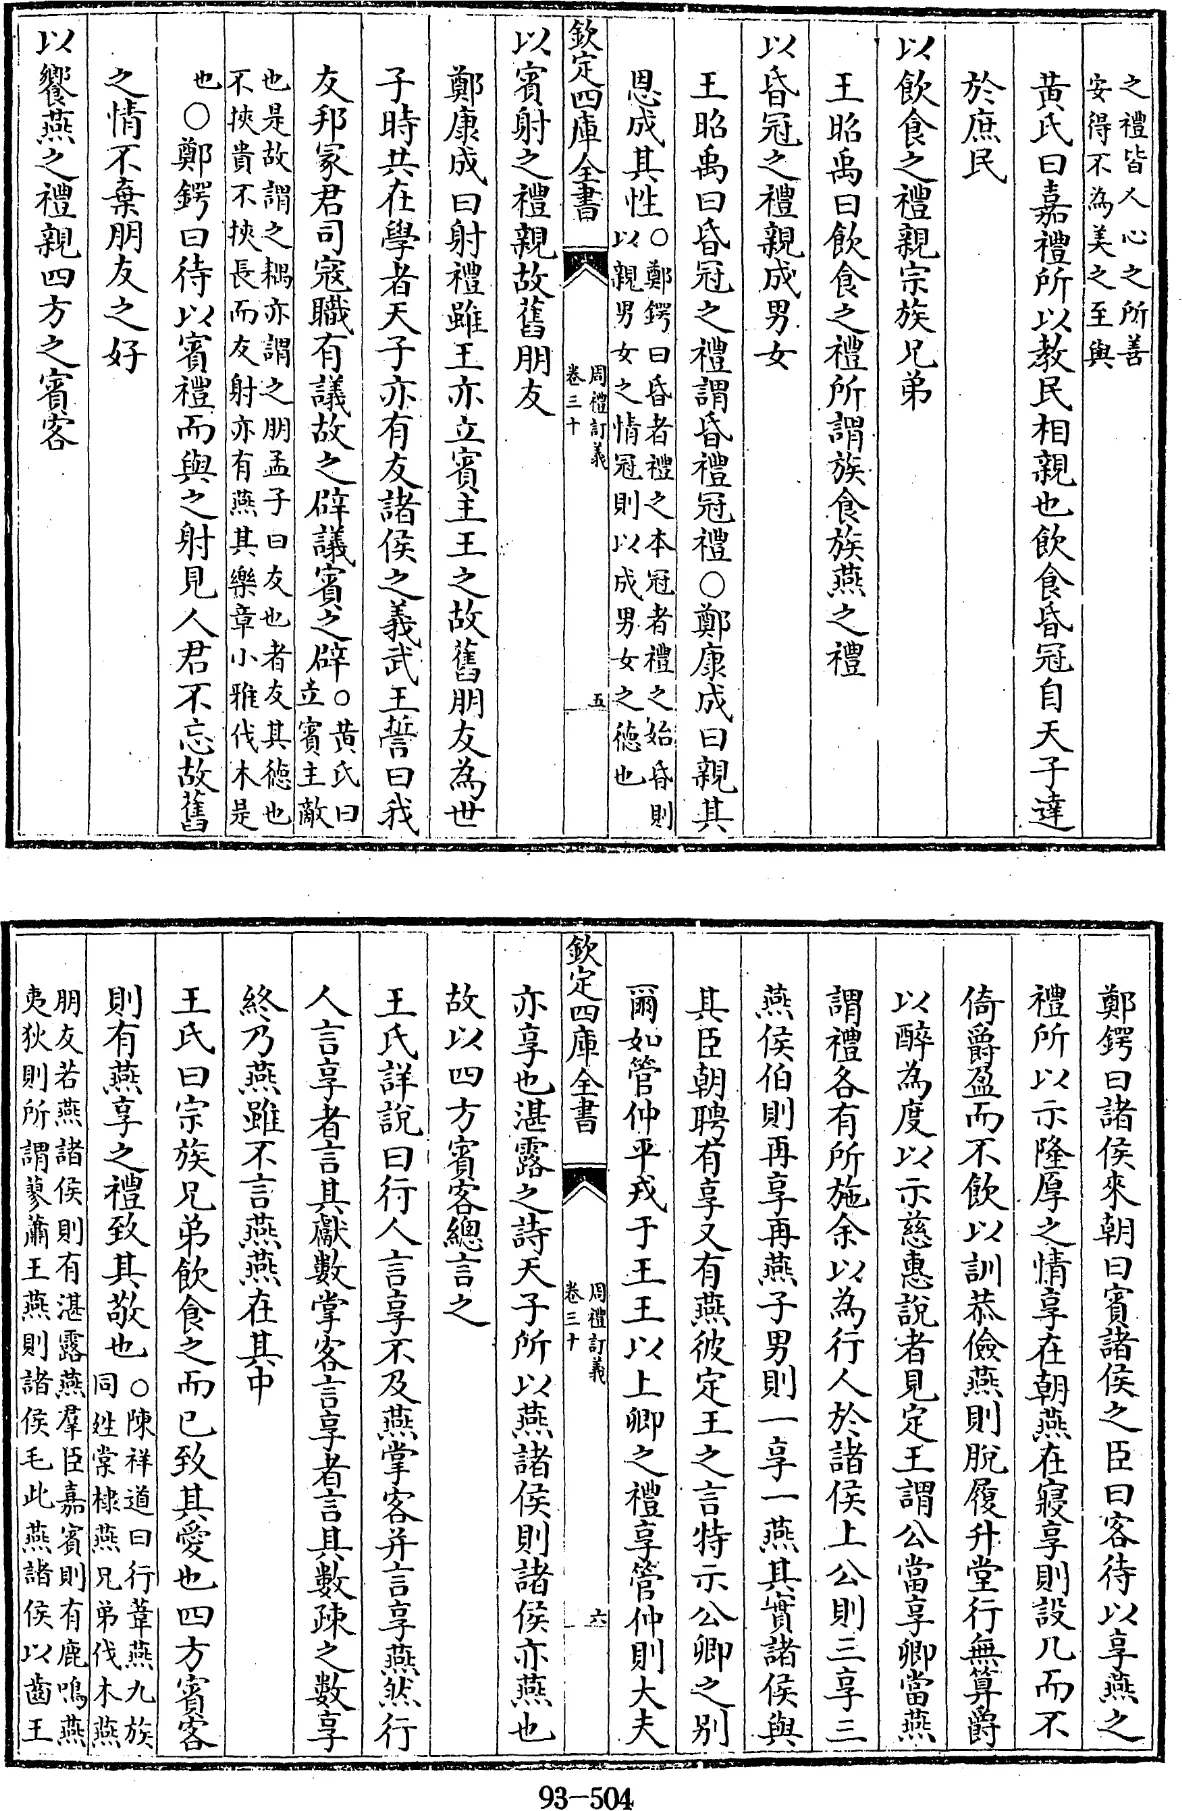 之禮皆人心之所善
安得不為美之至與
黃氏曰嘉禮所以教民相親也飲食昏冠自天子達
於庶民
以飲食之禮親宗族兄弟
王昭禹曰飲食之禮所謂族食族燕之禮
以昏冠之禮親成男女
王昭禹曰昏冠之禮謂昏禮冠禮○鄭康成曰親其
恩成其性○鄭鍔曰昏者禮之本冠者禮之始昏則
以親男女之情冠則以成男女之德也
欽定四庫全書
周禮訂義
卷三十
五
以賓射之禮親故舊朋友
鄭康成曰射禮雖王亦立賓主王之故舊朋友為世
子時共在學者天子亦有友諸侯之義武王誓曰我
友邦冢君司寇職有議故之辟議賓之辟○黃氏曰
立賓主敵
也是故謂之耦亦謂之朋孟子曰友也者友其德也
不挾貴不挾長而友射亦有燕其樂章小雅伐木是
也○鄭鍔曰待以賓禮而與之射見人君不忘故舊
之情不棄朋友之好
以饗燕之禮親四方之賓客
鄭鍔曰諸侯來朝曰賓諸侯之臣曰客待以享燕之
禮所以示隆厚之情享在朝燕在寢享則設几而不
倚爵盈而不飲以訓恭儉燕則脫履升堂行無算爵
以醉為度以示慈惠說者見定王謂公當享卿當燕
謂禮各有所施余以為行人於諸侯上公則三享三
燕侯伯則再享再燕子男則一享一燕其實諸侯與
其臣朝聘有享又有燕彼定王之言特示公卿之別
爾如管仲平戎于王王以上卿之禮享管仲則大夫
欽定四庫全書
周禮訂義
卷三十
六
亦享也湛露之詩天子所以燕諸侯則諸侯亦燕也
故以四方賓客總言之
王氏詳說曰行人言享不及燕掌客并言享燕然行
人言享者言其獻數掌客言享者言其數疎之數享
終乃燕雖不言燕燕在其中
王氏曰宗族兄弟飲食之而已致其愛也四方賓客
則有燕享之禮致其敬也○陳祥道曰行葦燕九族
同姓棠棣燕兄弟伐木燕
朋友若燕諸侯則有湛露燕羣臣嘉賓則有鹿鳴燕
夷狄則所謂蓼蕭王燕則諸侯毛此燕諸侯以齒王
93-504